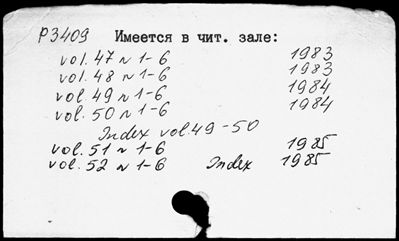 P3409 Имеется в чит. зале:
vol. 47 n 1-6 1983
vol. 48 n 1-6 1983
vol. 49 n 1-6 1984
vol. 50 n 1-6 1984
Index vol. 49-50
vol. 51 n 1-6 1985
vol. 52 n 1-6 Index 1985